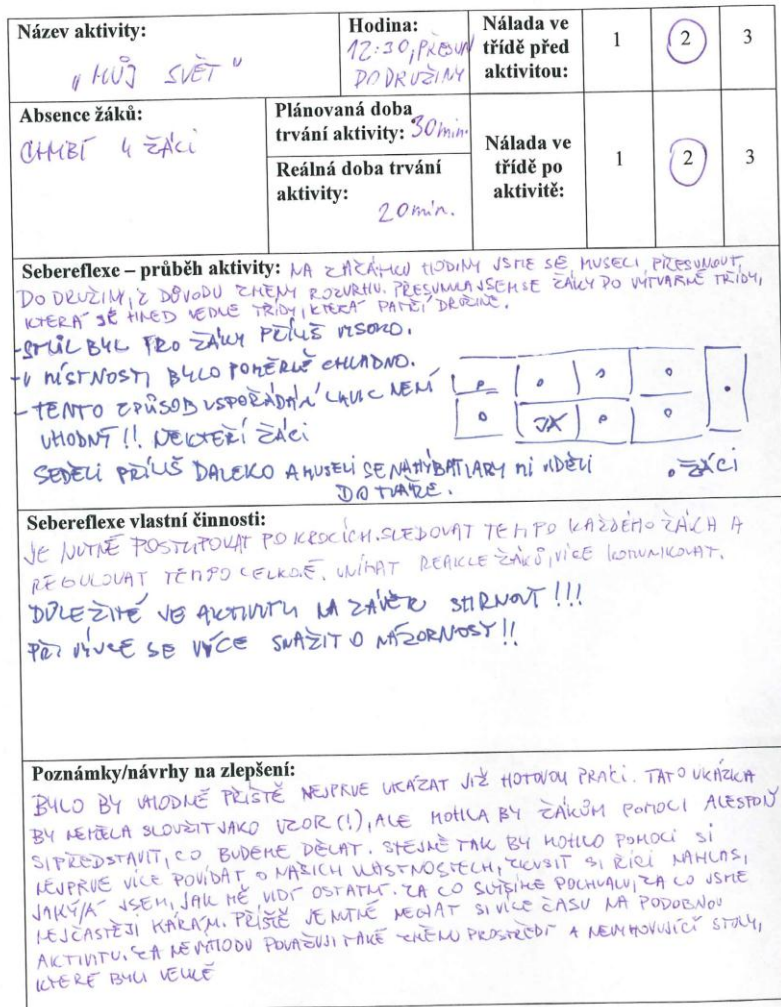 Název aktivity:
"MŮJ SVĚT"
Hodina:
12:30, PŘESUN
DO DRUŽINY
Nálada ve
třídě před
aktivitou:
1
2
3
Absence žáků:
CHYBÍ 4 ŽÁCI
Plánovaná doba
trvání aktivity: 30 min.
Reálná doba trvání
aktivity:
20 min.
Nálada ve
třídě po
aktivitě:
1
2
3
Sebereflexe – průběh aktivity: NA ZAČÁTKU HODINY JSME SE MUSELI PŘESUNOUT
DO DRUŽINY, Z DŮVODU ZMĚNY ROZVRHU. PŘESUNULA JSEM SE ŽÁKY DO VÝTVARNÉ TŘÍDY,
KTERÁ JE HNED VEDLE TŘÍDY, KTERÁ PATŘÍ DRUŽINĚ.
- STŮL BYL PRO ŽÁKY PŘÍLIŠ VYSOKO.
- V MÍSTNOSTI BYLO POMĚRNĚ CHLADNO.
- TENTO ZPŮSOB USPOŘÁDÁNÍ LAVIC NENÍ
VHODNÝ!! NĚKTEŘÍ ŽÁCI
SEDĚLI PŘÍLIŠ DALEKO A MUSELI SE NAHÝBAT, ABY MI VIDĚLI
DO TVÁŘE.
JÁ
. ŽÁCI
Sebereflexe vlastní činnosti:
JE NUTNÉ POSTUPOVAT PO KROCÍCH. SLEDOVAT TEMPO KAŽDÉHO ŽÁKA A
REGULOVAT TEMPO CELKOVĚ. VNÍMAT REAKCE ŽÁKŮ, VÍCE KOMUNIKOVAT.
DŮLEŽITÉ JE AKTIVITU NA ZÁVĚR SHRNOUT!!!
PŘI VÝUCE SE VÍCE SNAŽIT O NÁZORNOST!!
Poznámky/návrhy na zlepšení:
BYLO BY VHODNÉ PŘÍŠTĚ NEJPRVE UKÁZAT JIŽ HOTOVOU PRÁCI. TATO UKÁZKA
BY NEMĚLA SLOUŽIT JAKO VZOR (!), ALE MOHLA BY ŽÁKŮM POMOCI ALESPOŇ
SI PŘEDSTAVIT, CO BUDEME DĚLAT. STEJNĚ TAK BY MOHLO POMOCI SI
NEJPRVE VÍCE POVÍDAT O NAŠICH VLASTNOSTECH, ZKUSIT SI ŘÍCI NAHLAS,
JAKÝ/Á JSEM, JAK MĚ VIDÍ OSTATNÍ. ZA CO SLYŠÍME POCHVALU, ZA CO JSME
NEJČASTĚJI KÁRÁNI. PŘÍŠTĚ JE NUTNÉ NECHAT SI VÍCE ČASU NA PODOBNOU
AKTIVITU. ZA NEVÝHODU POVAŽUJI TAKÉ ZMĚNU PROSTŘEDÍ A NEVYHOVUJÍCÍ STOLY,
KTERÉ BYLI VELKÉ